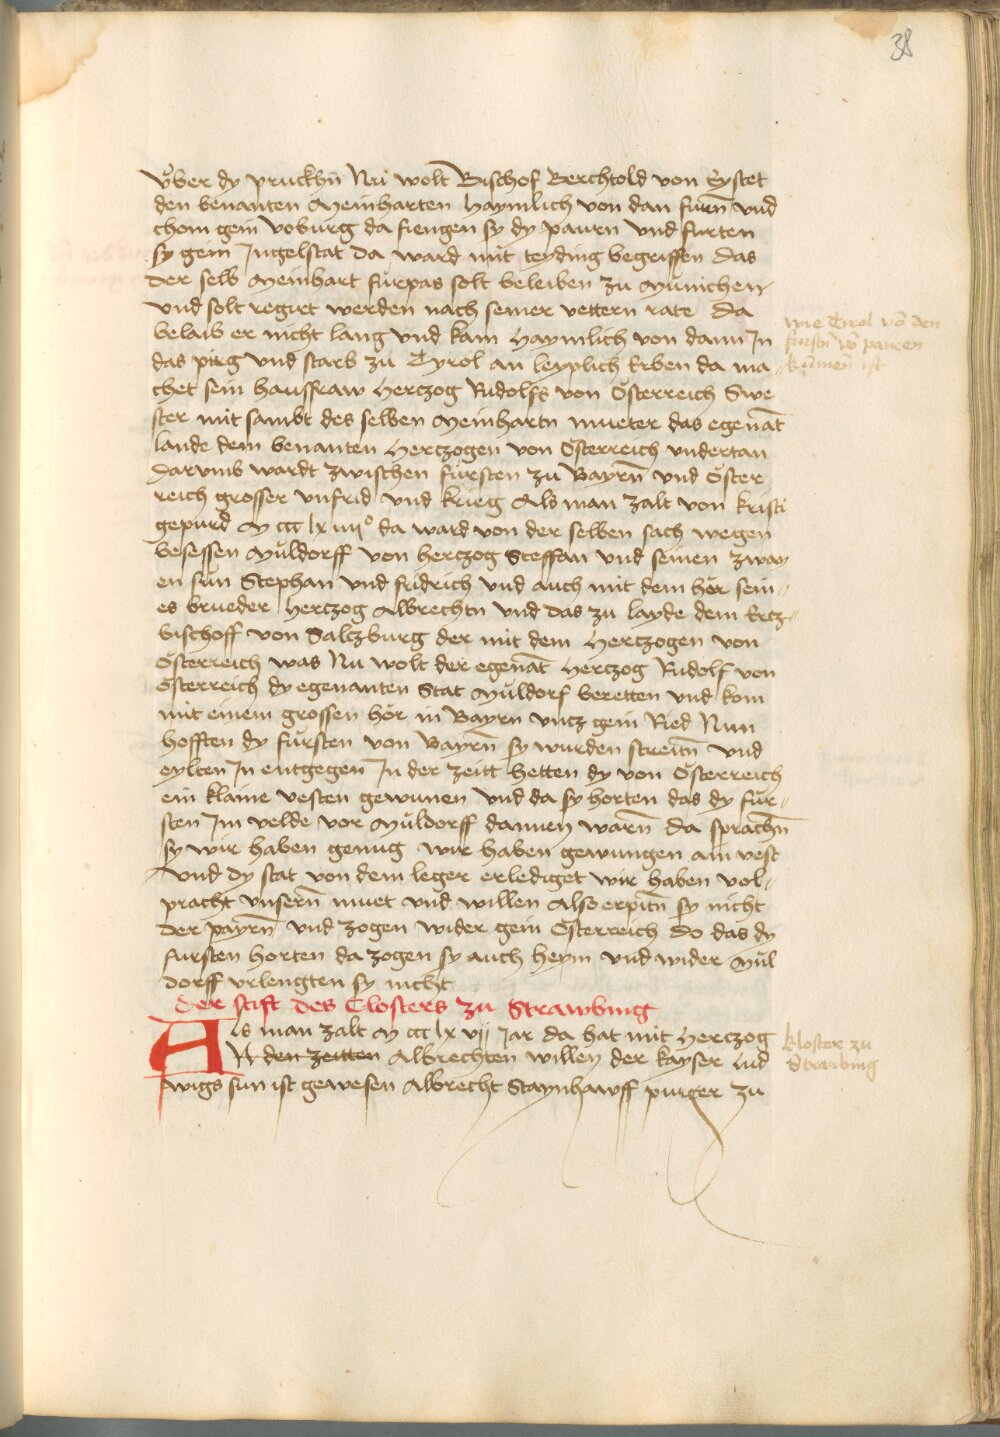 38
vͦber dy pruckhn̄ Nu wolt Bischof Berchtold von Eystet
den benanten Meinharten Haymlich von dan furn̄ vnd
chom gein Voburg da fiengen sy dy paurn vnd furten
sy gein Ingelstat da ward mit teyding begriffen das
der selb Meinhart furpas solt beleiben zu Munichen
vnd solt regirt werden nach seiner vettern rate da
belaib er nicht lang vnd kam haymlich von dann In
das pirg vnd starb zu Tyrol an leyplich Erben da ma-
chet sein hausfraw Hertzog Rudolfs von Osterreich Swe
ster mit sambt des selben Meinhartn mueter das egenāt
lande dem benanten Hertzogen von Osterreich vndertan
Darumb wardt zwischen fursten zu Bayrn̄ vnd Oster
reich grosser vnfrid vnd krieg Als man zalt von kristi
gepurd M ccc lx iiiiº da ward von der selben sach wegen
besessen Muldorff von hertzog Steffan vnd seinen zway
en sun Stephan vnd fridrich vnd auch mit dem hör sein-
es brueder Hertzog Albrechtn vnd das zu layde dem Ertz-
bischoff von Saltzburg der mit dem Hertzogen von
Osterreich was Nu wolt der egenāt Hertzog Rudolf von
Osterreich dy egenanten Stat Muldorf beretten vnd kom
mit einem grossen hör in Bayrn vntz gein Ried Nun
hofften dy fursten von Bayrn̄ sy wurden streitn̄ vnd
eylten In entgegen In der zeitt hetten dy von Osterreich
ein klaine vesten gewunen vnd da sy horten das dy fur-
sten Im velde vor Muldorff dannen warn̄ da sprachn̄
sy wir haben genug wir haben gewungen ain vest
vnd dy stat von dem leger erlediget wir haben vol-
pracht vnsern̄ muet vnd willen Also erpitn̄ sy nicht
der payrn̄ vnd zogen wider gein Osterreich do das dy
fursten horten da zogen sy auch heym vnd wider Mul
dorff vrlengten sy nicht
Der stift des Closters zu Strawbing
Als man zalt M ccc lx vij jar da hat mit Hertzog
N den zeitten Albrechten willen der kayser Lud
wigs sun ist gewesen Albrecht Staynhawff purger zu
wie Tirol vō den
fursten vō payren
kumen̄ ist
kloster zu
Straubing